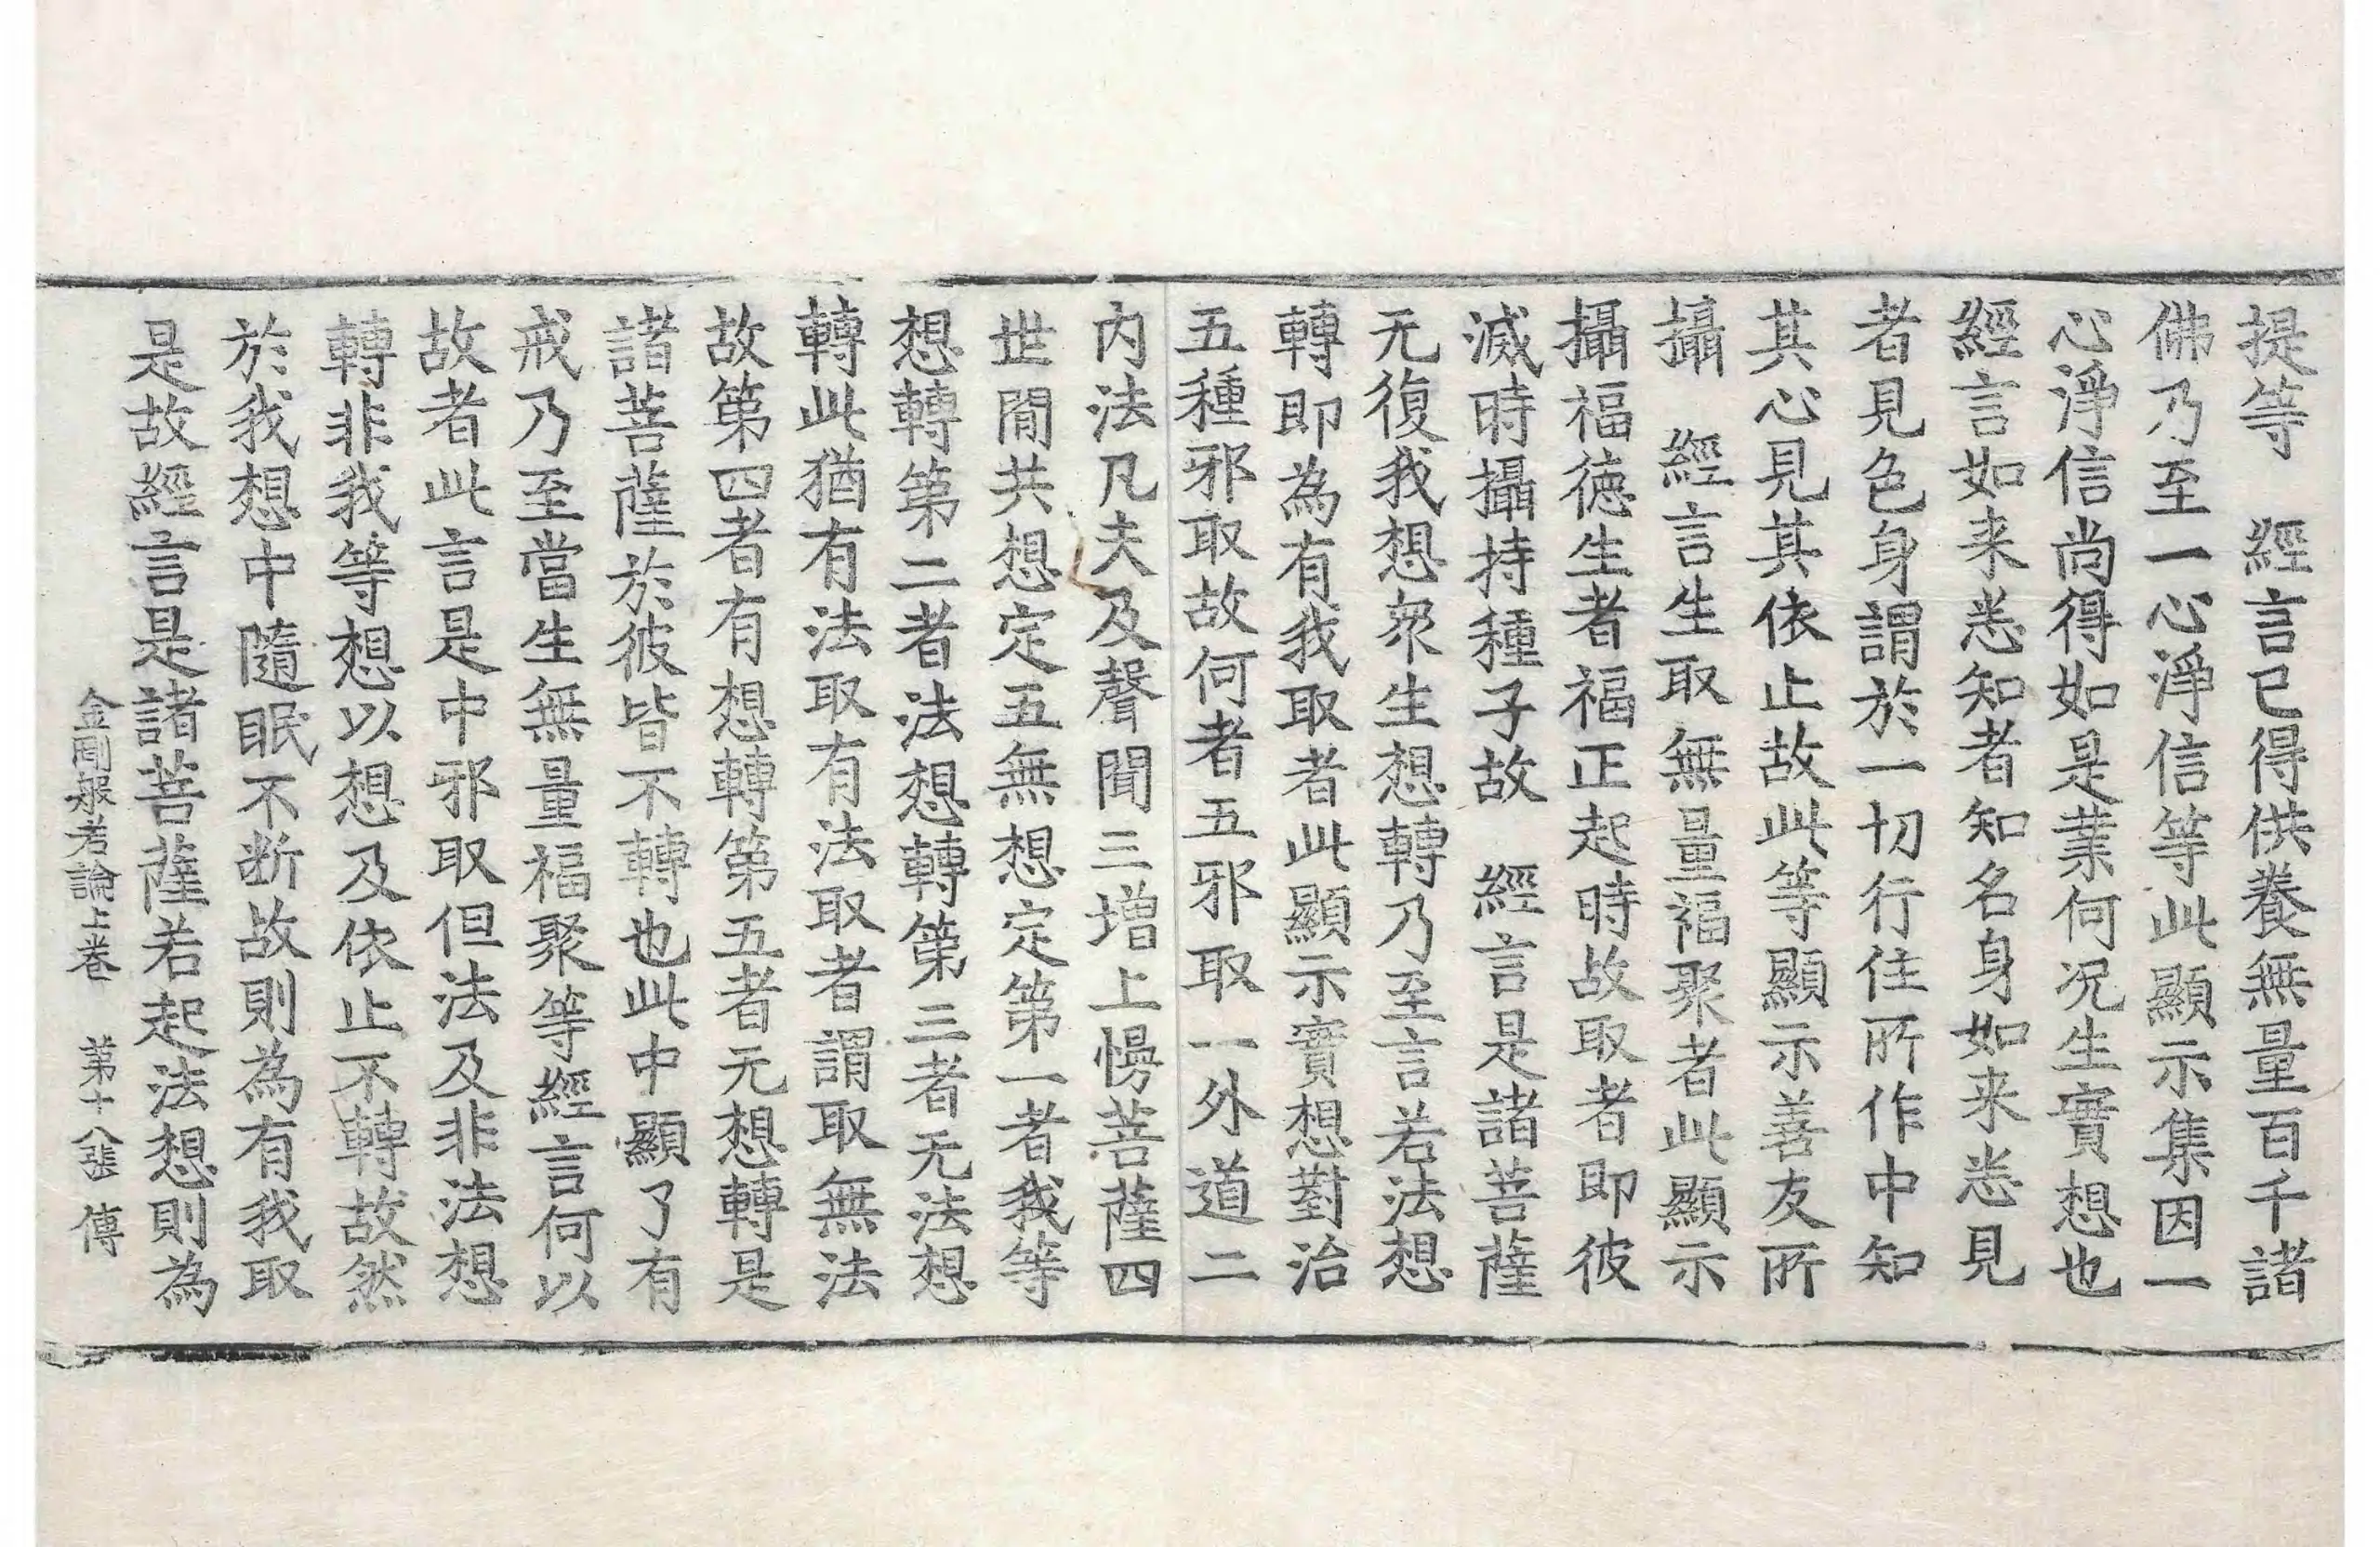 提等　經言已得供養無量百千諸
佛乃至一心淨信等此顯示集因一
心淨信尚得如是業何况生實想也
經言如来悉知者知名身如来悉見
者見色身謂於一切行住所作中知
其心見其依止故此等顯示善友所
攝　經言生取無量福聚者此顯示
攝福徳生者福正起時故取者即彼
滅時攝持種子故　經言是諸菩薩
无復我想衆生想轉乃至言若法想
轉即為有我取者此顯示實想對治
五種邪取故何者五邪取一外道二
内法凡夫及聲聞三增上慢菩薩四
世間共想定五無想定第一者我等
想轉第二者法想轉第三者无法想
轉此猶有法取有法取者謂取無法
故第四者有想轉第五者无想轉是
諸菩薩於彼皆不轉也此中顯了有
戒乃至當生無量福聚等經言何以
故者此言是中邪取但法及非法想
轉非我等想以想及依止不轉故然
於我想中隨眠不断故則為有我取
是故經言是諸菩薩若起法想則為
金剛般若論上卷　第十八張　傳